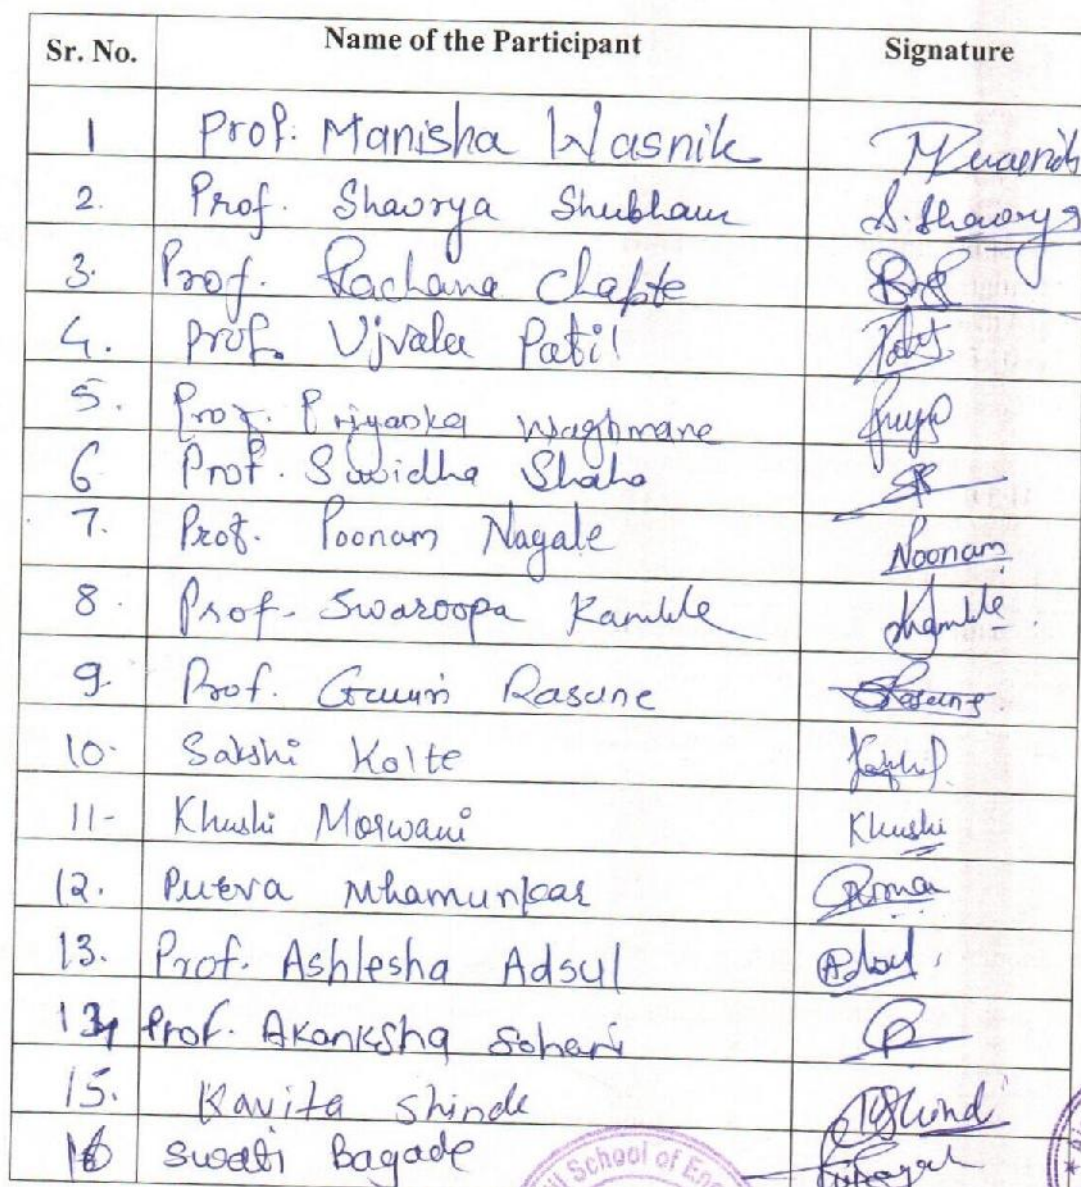 Sr. No. Name of the Participant Signature
1 Prof. Manisha Wasnik MWasnik
2. Prof. Shaurya Shubham S. Shaurya
3. Prof. Rachana Chapte
4. Prof. Ujvala Patil Patil
5. Prof. Priyanka Waghmare Priya
6 Prof. Suvidha Shaha
7. Prof. Poonam Nagale Noonam
8. Prof. Swaroopa Kamble Kamble
9. Prof. Gauri Rasane Rasane
10. Sakshi Kolte
11- Khushi Morwani Khushi
12. Purva Mhamunkar
13. Prof. Ashlesha Adsul Adsul.
14 Prof. Akanksha Soheni
15. Kavita Shinde
16 Swati Bagade
School of